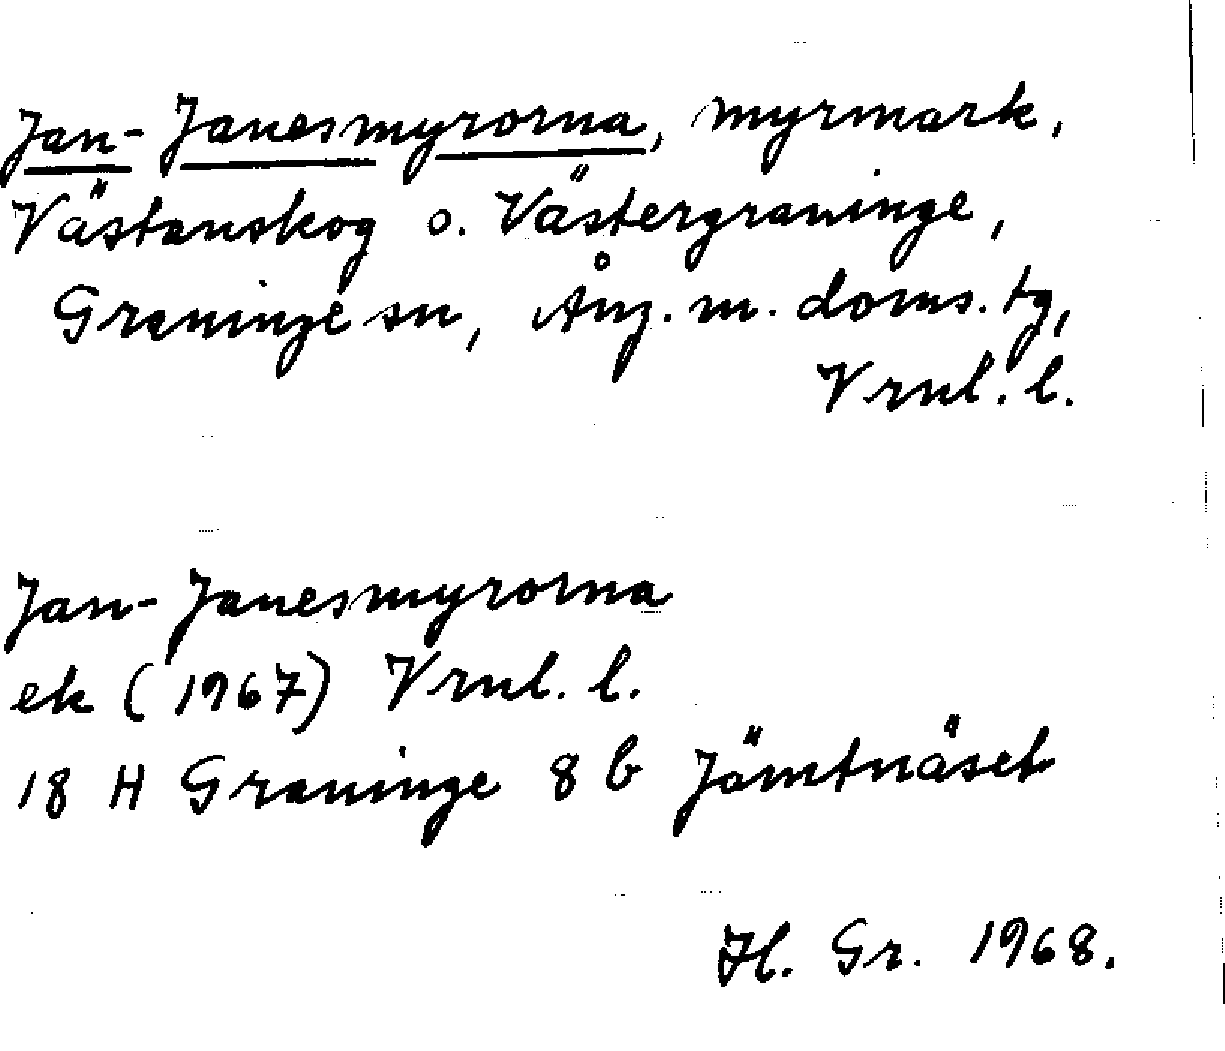 Jan-Janesmyrorna, myrmark,
Västanskog o. Västergraninge,
Graninge sn, Ång. m. doms. tg,
Vrnl. l.
Jan-Janesmyrorna
ek (1967) Vrnl. l.
18 H Graninge 8 b Jämtnäset
H. Gr. 1968.